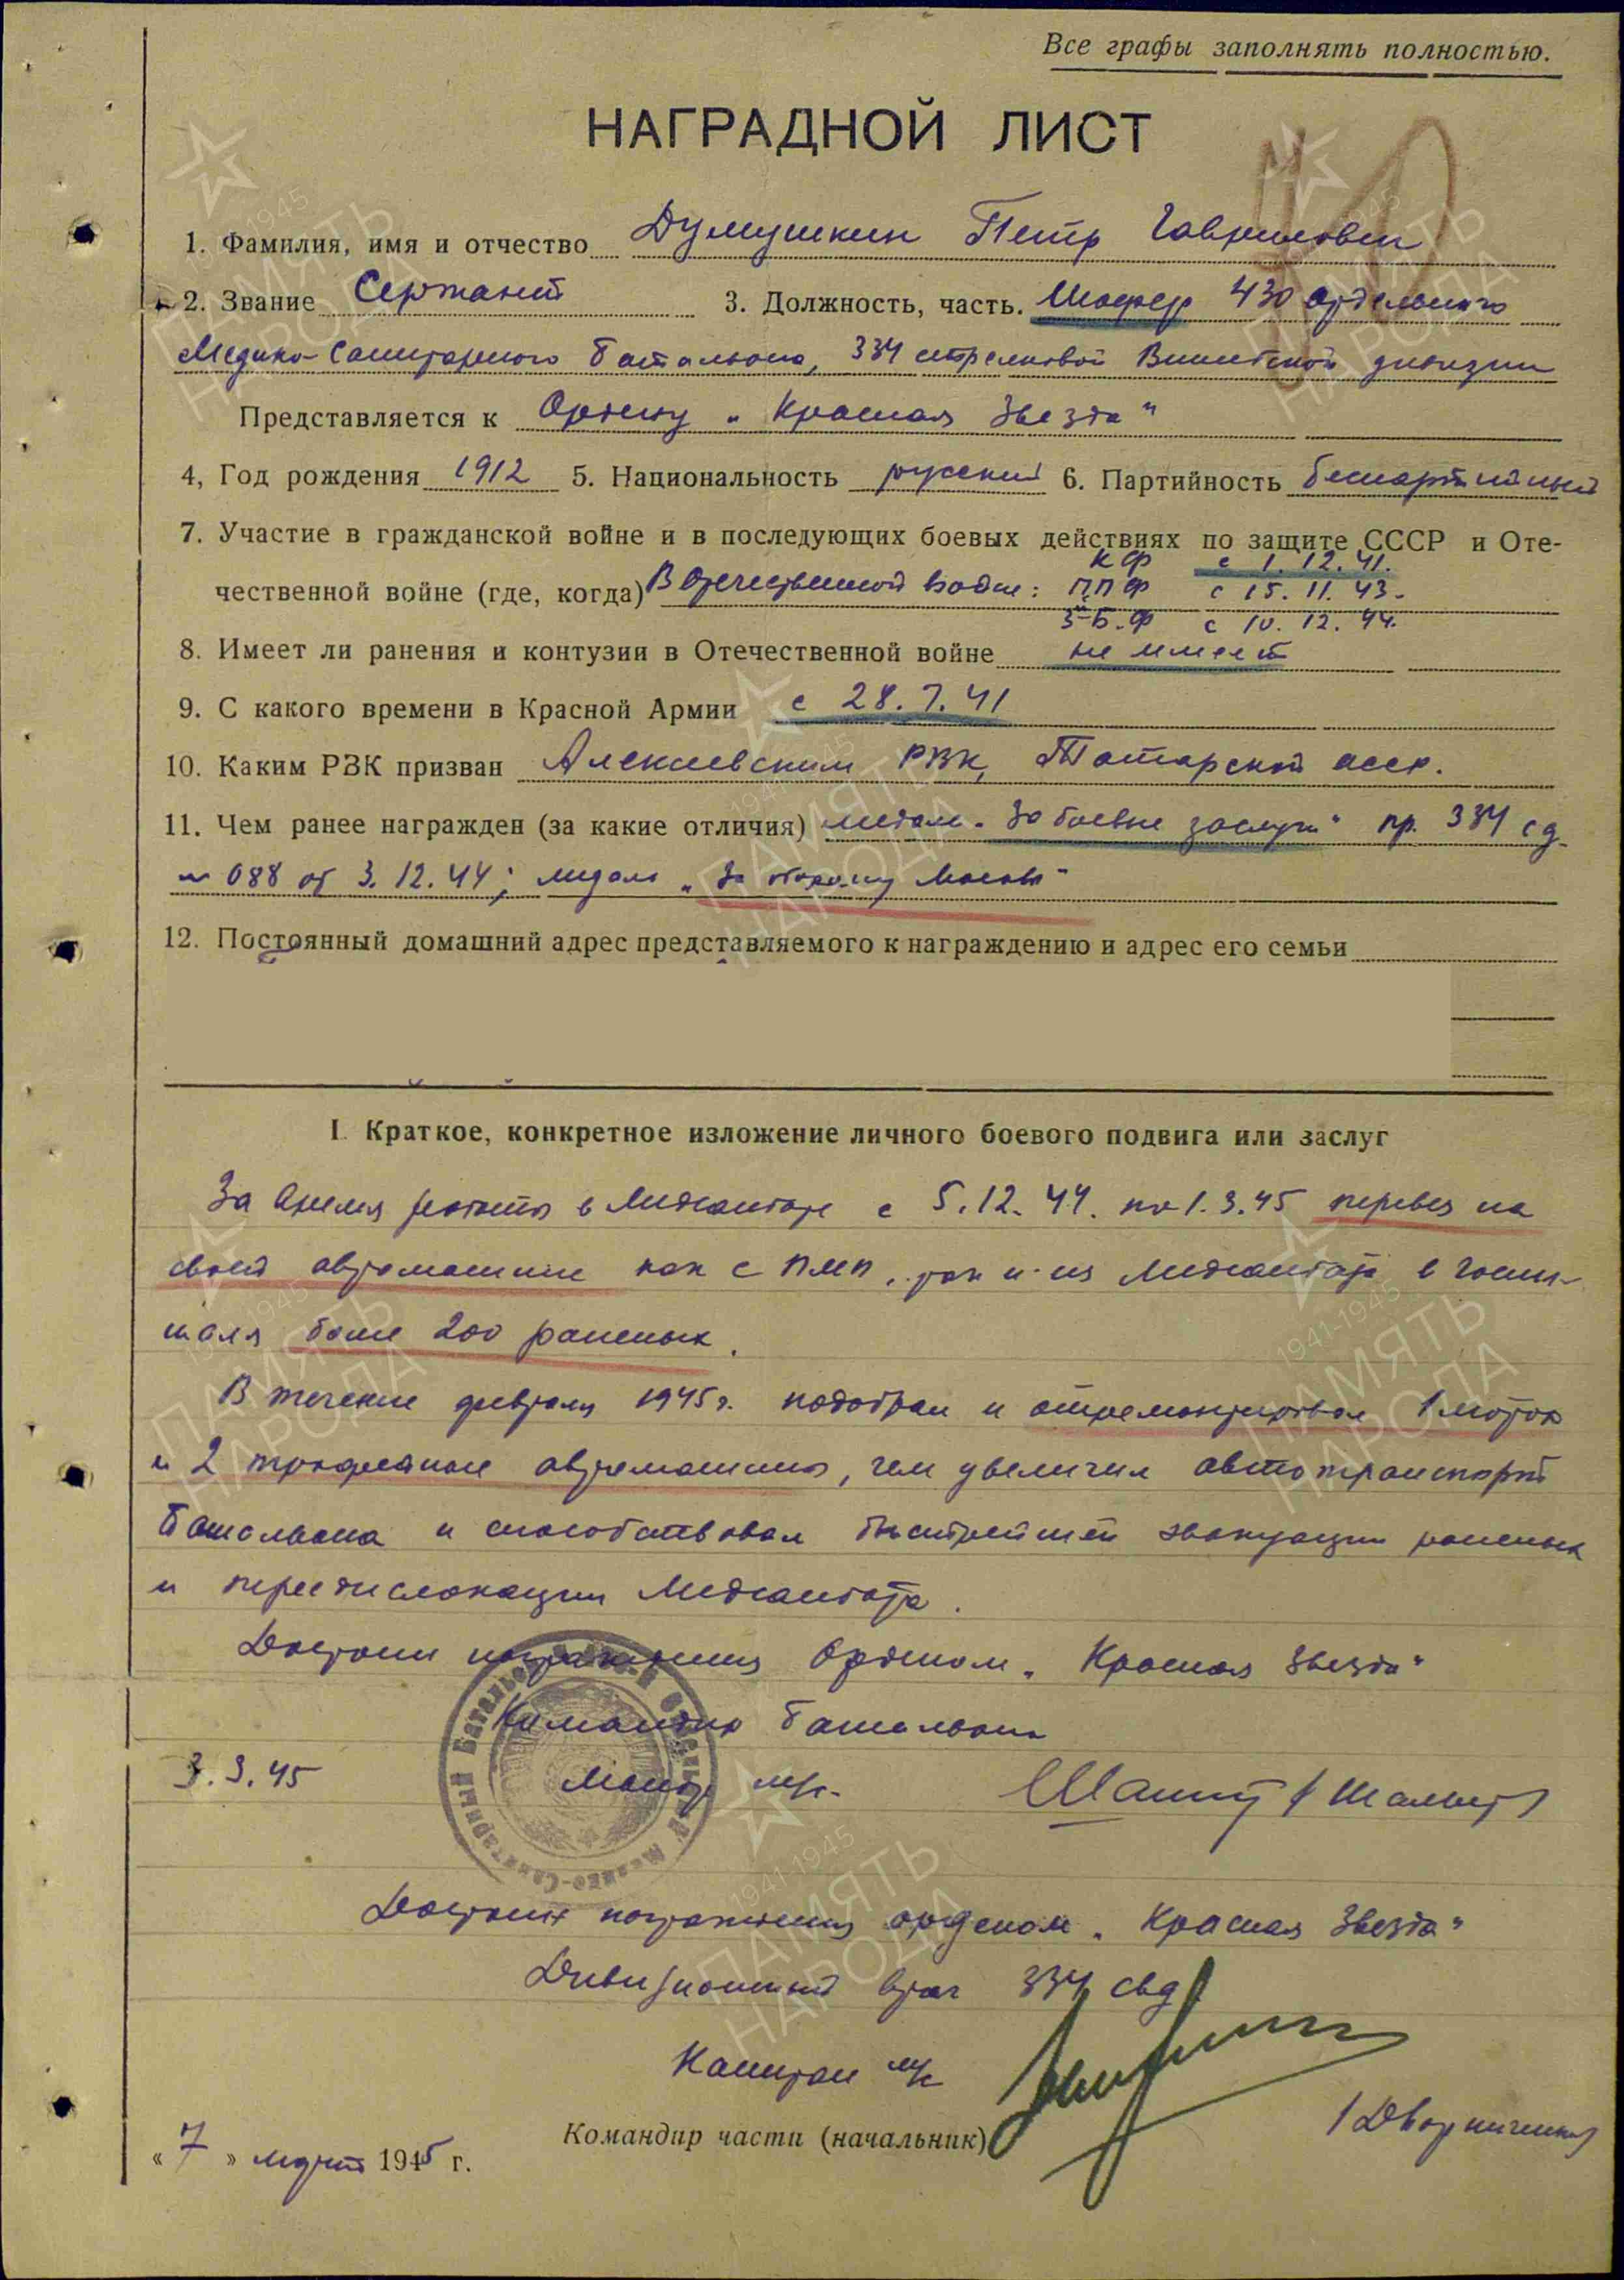 Все графы заполнять полностью.
НАГРАДНОЙ ЛИСТ
1. Фамилия, имя и отчество Думушкин Петр Гаврилович
2. Звание Сержант 3. Должность, часть. Шофер 430 отдельного
Медико-Санитарного батальона, 334 стрелковой Витебской дивизии
Представляется к Ордену „Красная Звезда"
4, Год рождения 1912 5. Национальность русский 6. Партийность беспартийный
7. Участие в гражданской войне и в последующих боевых действиях по защите СССР и Оте-
КФ с 1.12.41.
чественной войне (где, когда) В Отечественной войне: ППФ с 15.11.43.
3-Б.Ф с 10.12.44.
8. Имеет ли ранения и контузии в Отечественной войне не имеет
9. С какого времени в Красной Армии с 28.7.41
10. Каким РВК призван Алексеевским РВК, Татарской асср.
11. Чем ранее награжден (за какие отличия) медаль „За боевые заслуги" пр. 334 сд
№ 088 от 3.12.44; медаль „За оборону Москвы"
12. Постоянный домашний адрес представляемого к награждению и адрес его семьи
I. Краткое, конкретное изложение личного боевого подвига или заслуг
За время работы в Медсанбате с 5.12.44. по 1.3.45 перевез на
своей автомашине как с ПМП, так и из Медсанбата в госпи-
таля более 200 раненых.
В течение февраля 1945 г. подобрал и отремонтировал 1 мотор
и 2 трофейные автомашины, чем увеличил автотранспорт
батальона и способствовал быстрейшей эвакуации раненых
и передислокации Медсанбата.
Достоин награждения Орденом „Красная Звезда"
Командир батальона
3.3.45 Майор м/с.
Достоин награждения орденом „Красная Звезда"
Дивизионный врач 334 свд
Капитан м/с
Командир части (начальник) /Дворниченко/
« 7 » марта 1945 г.
Медико-Санитарный Батальон
ПАМЯТЬ
НАРОДА
1941-1945